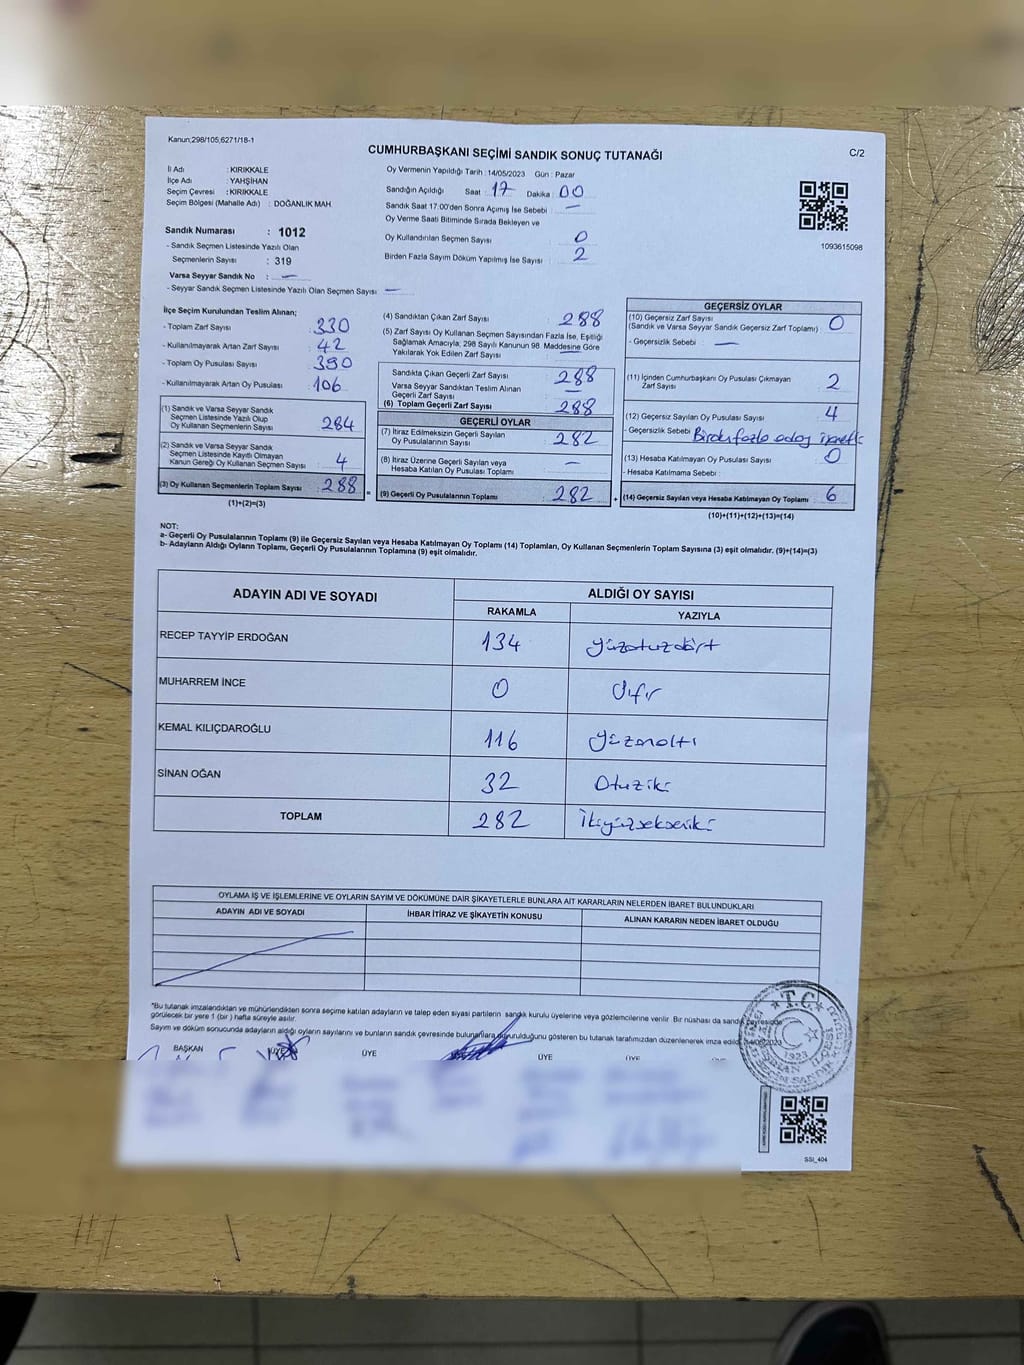 Kanun;298/105;6271/18-1
CUMHURBAŞKANI SEÇİMİ SANDIK SONUÇ TUTANAĞI
C/2
İl Adı : KIRIKKALE
İlçe Adı : YAHŞİHAN
Seçim Çevresi : KIRIKKALE
Seçim Bölgesi (Mahalle Adı) : DOĞANLIK MAH.
Sandık Numarası : 1012
- Sandık Seçmen Listesinde Yazılı Olan
Seçmenlerin Sayısı : 319
Varsa Seyyar Sandık No : —
- Seyyar Sandık Seçmen Listesinde Yazılı Olan Seçmen Sayısı : —
Oy Vermenin Yapıldığı Tarih : 14/05/2023 Gün : Pazar
Sandığın Açıldığı Saat : 17 Dakika : 00
Sandık Saat 17:00'den Sonra Açımış İse Sebebi : —
Oy Verme Saati Bitiminde Sırada Bekleyen ve
Oy Kullandırılan Seçmen Sayısı : 0
Birden Fazla Sayım Döküm Yapılmış İse Sayısı : 2
1093615098
İlçe Seçim Kurulundan Teslim Alınan;
- Toplam Zarf Sayısı : 330
- Kullanılmayarak Artan Zarf Sayısı : 42
- Toplam Oy Pusulası Sayısı : 390
- Kullanılmayarak Artan Oy Pusulası : 106
(1) Sandık ve Varsa Seyyar Sandık
Seçmen Listesinde Yazılı Olup
Oy Kullanan Seçmenlerin Sayısı : 284
(2) Sandık ve Varsa Seyyar Sandık
Seçmen Listesinde Kayıtlı Olmayan
Kanun Gereği Oy Kullanan Seçmen Sayısı : 4
(3) Oy Kullanan Seçmenlerin Toplam Sayısı : 288
(1)+(2)=(3)
(4) Sandıktan Çıkan Zarf Sayısı : 288
(5) Zarf Sayısı Oy Kullanan Seçmen Sayısından Fazla İse, Eşitliği
Sağlamak Amacıyla, 298 Sayılı Kanunun 98. Maddesine Göre
Yakılarak Yok Edilen Zarf Sayısı : —
Sandıkta Çıkan Geçerli Zarf Sayısı : 288
Varsa Seyyar Sandıktan Teslim Alınan
Geçerli Zarf Sayısı : —
(6) Toplam Geçerli Zarf Sayısı : 288
GEÇERLİ OYLAR
(7) İtiraz Edilmeksizin Geçerli Sayılan
Oy Pusulalarının Sayısı : 282
(8) İtiraz Üzerine Geçerli Sayılan veya
Hesaba Katılan Oy Pusulası Toplamı : —
= (9) Geçerli Oy Pusulalarının Toplamı : 282
GEÇERSİZ OYLAR
(10) Geçersiz Zarf Sayısı
(Sandık ve Varsa Seyyar Sandık Geçersiz Zarf Toplamı) : 0
- Geçersizlik Sebebi : —
(11) İçinden Cumhurbaşkanı Oy Pusulası Çıkmayan
Zarf Sayısı : 2
(12) Geçersiz Sayılan Oy Pusulası Sayısı : 4
- Geçersizlik Sebebi : Birden fazla aday
(13) Hesaba Katılmayan Oy Pusulası Sayısı : 0
- Hesaba Katılmama Sebebi :
+ (14) Geçersiz Sayılan veya Hesaba Katılmayan Oy Toplamı : 6
(10)+(11)+(12)+(13)=(14)
NOT:
a- Geçerli Oy Pusulalarının Toplamı (9) ile Geçersiz Sayılan veya Hesaba Katılmayan Oy Toplamı (14) Toplamları, Oy Kullanan Seçmenlerin Toplam Sayısına (3) eşit olmalıdır. (9)+(14)=(3)
b- Adayların Aldığı Oyların Toplamı, Geçerli Oy Pusulalarının Toplamına (9) eşit olmalıdır.
ADAYIN ADI VE SOYADI ALDIĞI OY SAYISI
RAKAMLA YAZIYLA
RECEP TAYYİP ERDOĞAN 134 yüzotuzdört
MUHARREM İNCE 0 sıfır
KEMAL KILIÇDAROĞLU 116 yüzonaltı
SİNAN OĞAN 32 Otuziki
TOPLAM 282 İkiyüzsekseniki
OYLAMA İŞ VE İŞLEMLERİNE VE OYLARIN SAYIM VE DÖKÜMÜNE DAİR ŞİKAYETLERLE BUNLARA AİT KARARLARIN NELERDEN İBARET BULUNDUKLARI
ADAYIN ADI VE SOYADI İHBAR İTİRAZ VE ŞİKAYETİN KONUSU ALINAN KARARIN NEDEN İBARET OLDUĞU
*Bu tutanak imzalandıktan ve mühürlendikten sonra seçime katılan adayların ve talep eden siyasi partilerin sandık kurulu üyelerine veya gözlemcilerine verilir. Bir nüshası da sandık çevresinde
görülecek bir yere 1 (bir) hafta süreyle asılır.
Sayım ve döküm sonucunda adayların aldığı oyların sayılarını ve bunların sandık çevresinde bulunanlara duyurulduğunu gösteren bu tutanak tarafımızdan düzenlenerek imza edildi. 14/05/2023
BAŞKAN ÜYE ÜYE ÜYE ÜYE
T.C.
1923
SSI_404